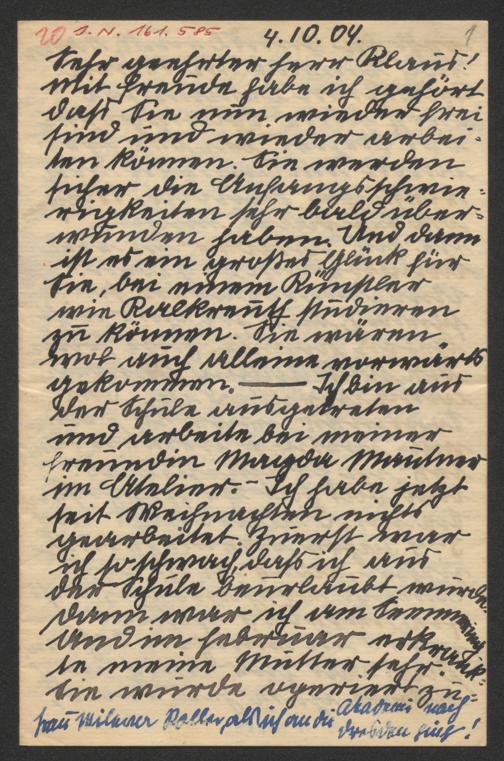 20 J. N. 161.585
4.10.04.
1
Sehr geehrter Herr Klaus!
Mit Freude habe ich gehört
dass Sie nun wieder frei
sind und wieder arbei-
ten können. Sie werden
sicher die Anfangsschwie-
rigkeiten sehr bald über-
wunden haben. Und dann
ist es ein großes Glück für
Sie, bei einem Künstler
wie Kalkreuth studieren
zu können. Sie wären
wol auch alleine vorwärts
gekommen. — Ich bin aus
der Schule ausgetreten
und arbeite bei meiner
Freundin Magda Mautner
im Atelier. – Ich habe jetzt
seit Weihnachten nichts
gearbeitet. Zuerst war
ich so schwach, dass ich aus
der Schule beurlaubt wurde.
Dann war ich am Semmering
Und im Februar erkrank-
te meine Mutter sehr.
Sie wurde operiert zu-
Frau Roller, als ich an die Akademie nach
Dresden ging!